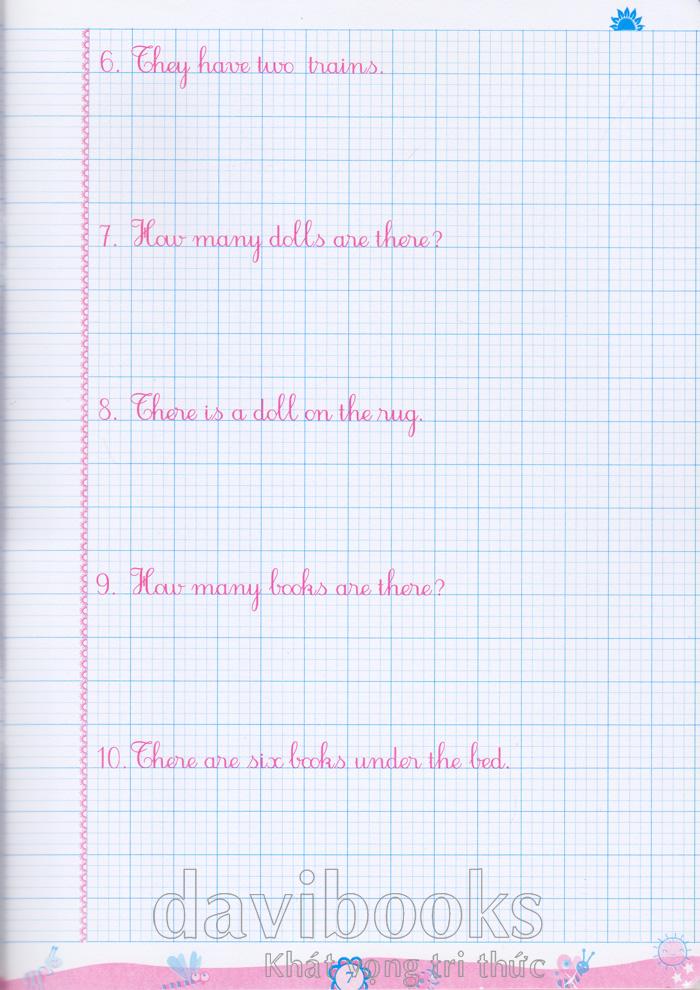 6. They have two trains.
7. How many dolls are there?
8. There is a doll on the rug.
9. How many books are there?
10. There are six books under the bed.
davibooks
Khát vọng tri thức
7